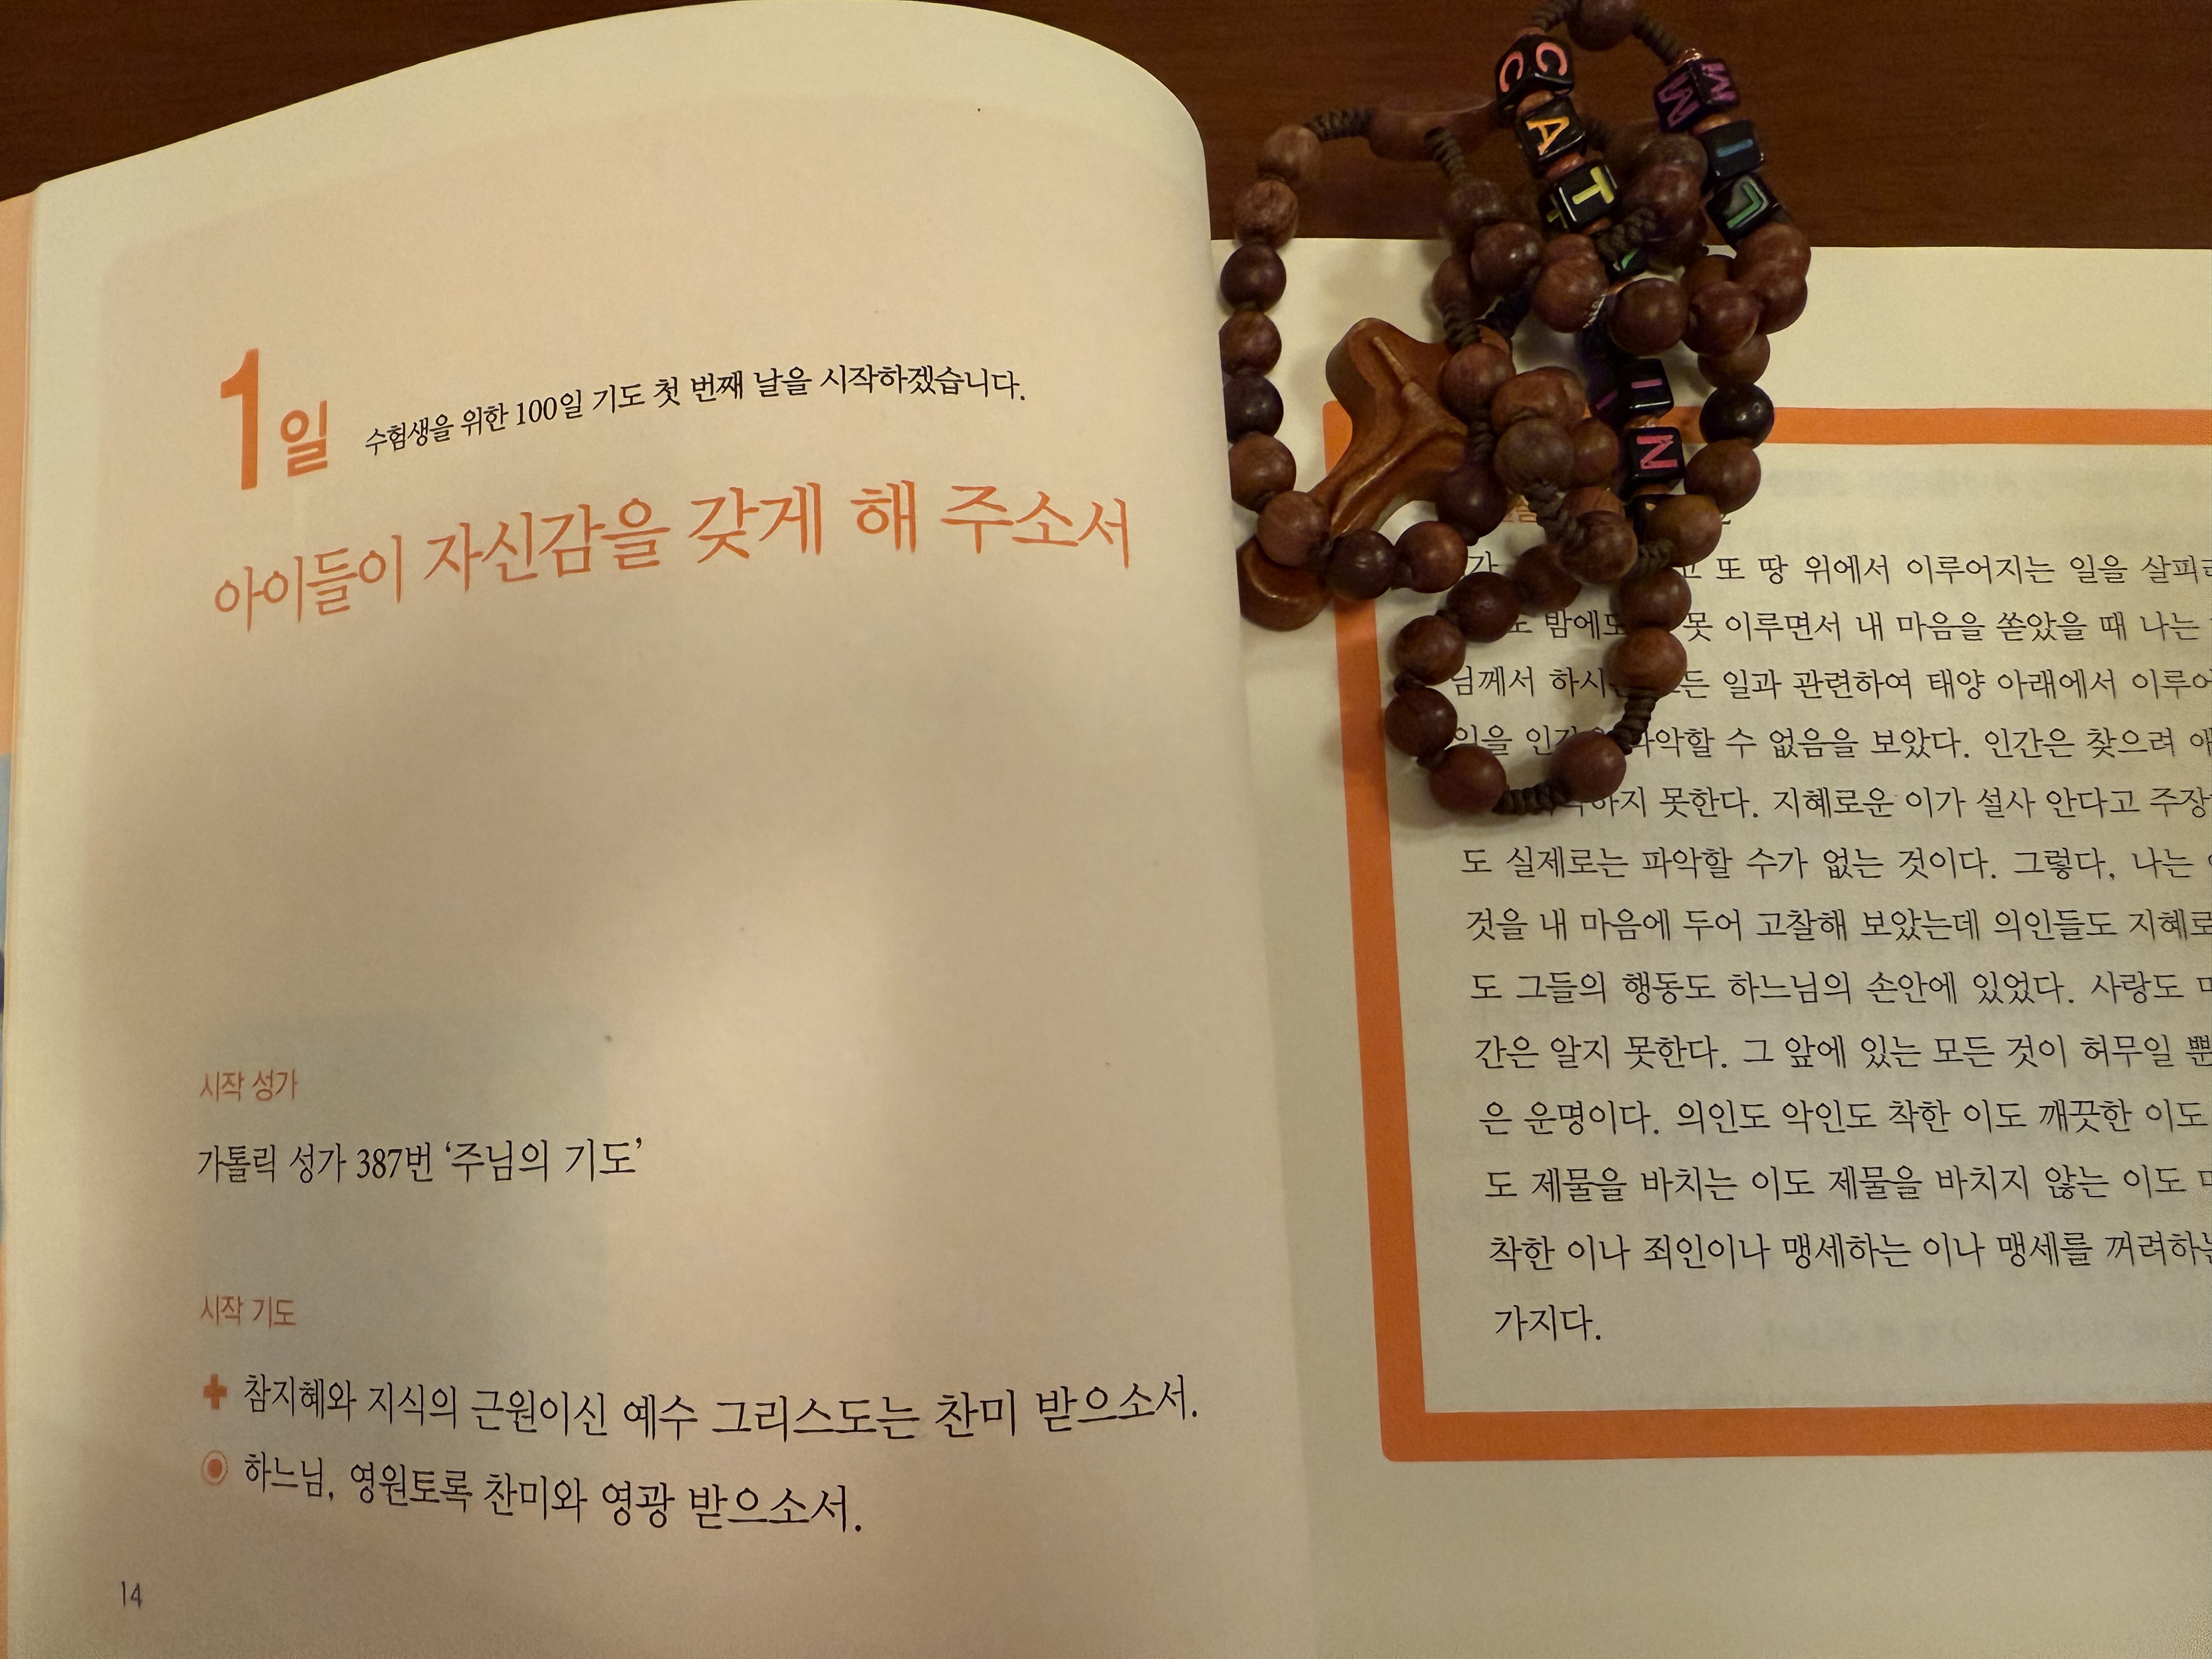 1일 수험생을 위한 100일 기도 첫 번째 날을 시작하겠습니다.
아이들이 자신감을 갖게 해 주소서
시작 성가
가톨릭 성가 387번 ‘주님의 기도’
시작 기도
✚ 참지혜와 지식의 근원이신 예수 그리스도는 찬미 받으소서.
◉ 하느님, 영원토록 찬미와 영광 받으소서.
14
CAT
WIL
IN
또 땅 위에서 이루어지는 일을
밤에도 못 이루면서 내 마음을 쏟았을 때 나는
님께서 일과 관련하여 태양 아래에서
일을 수 없음을 보았다. 인간은 찾으려
못한다. 지혜로운 이가 설사 안다고
도 실제로는 파악할 수가 없는 것이다. 그렇다, 나는
것을 내 마음에 두어 고찰해 보았는데 의인들도
도 그들의 행동도 하느님의 손안에 있었다. 사랑도
간은 알지 못한다. 그 앞에 있는 모든 것이 허무일
은 운명이다. 의인도 악인도 착한 이도 깨끗한 이도
도 제물을 바치는 이도 제물을 바치지 않는 이도
착한 이나 죄인이나 맹세하는 이나 맹세를
가지다.